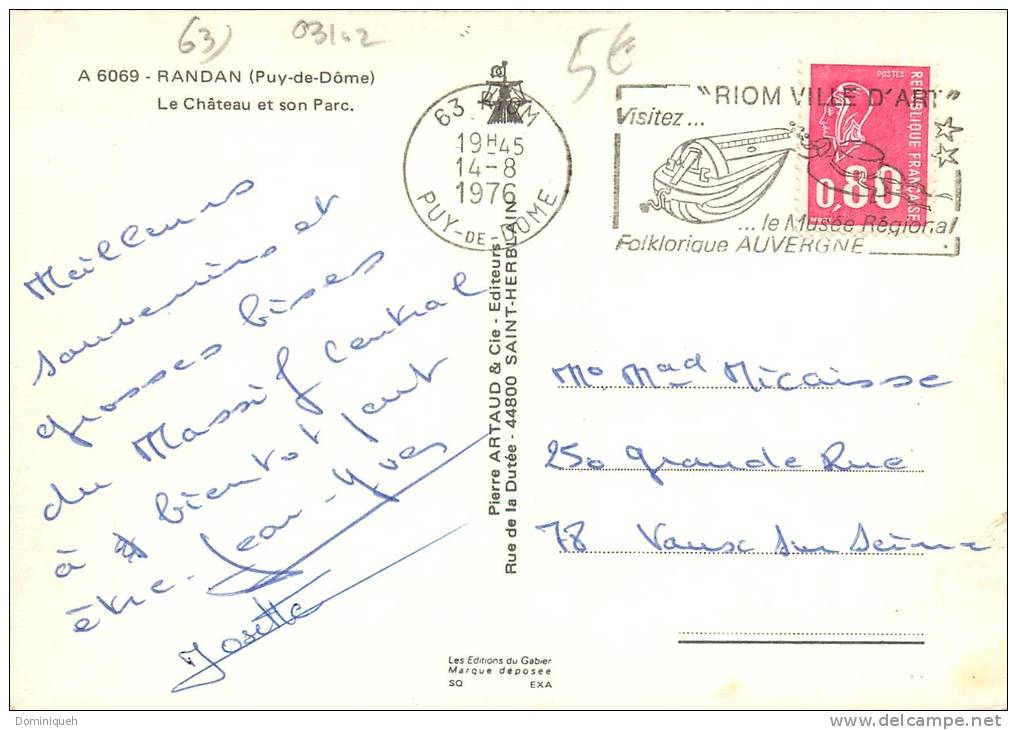 63) 03/02
5€
A 6069 - RANDAN (Puy-de-Dôme)
Le Château et son Parc.
63 RIOM
19H45
14-8
1976
PUY-DE-DOME
"RIOM VILLE D'ART"
Visitez...
...le Musée Régional
Folklorique AUVERGNE
POSTES
REPUBLIQUE FRANÇAISE
0,80
Meilleurs
souvenirs et
grosses bises
du Massif Central
à bientot peut
être. Jean-Yves
Josette
Pierre ARTAUD & Cie - Editeurs
Rue de la Dutée - 44800 SAINT-HERBLAIN
Mo Mad Micaisse
250 grande Rue
78 Vaux sur Seine
Les Editions du Gabier
Marque déposée
SQ EXA
Dominiqueh
www.delcampe.net